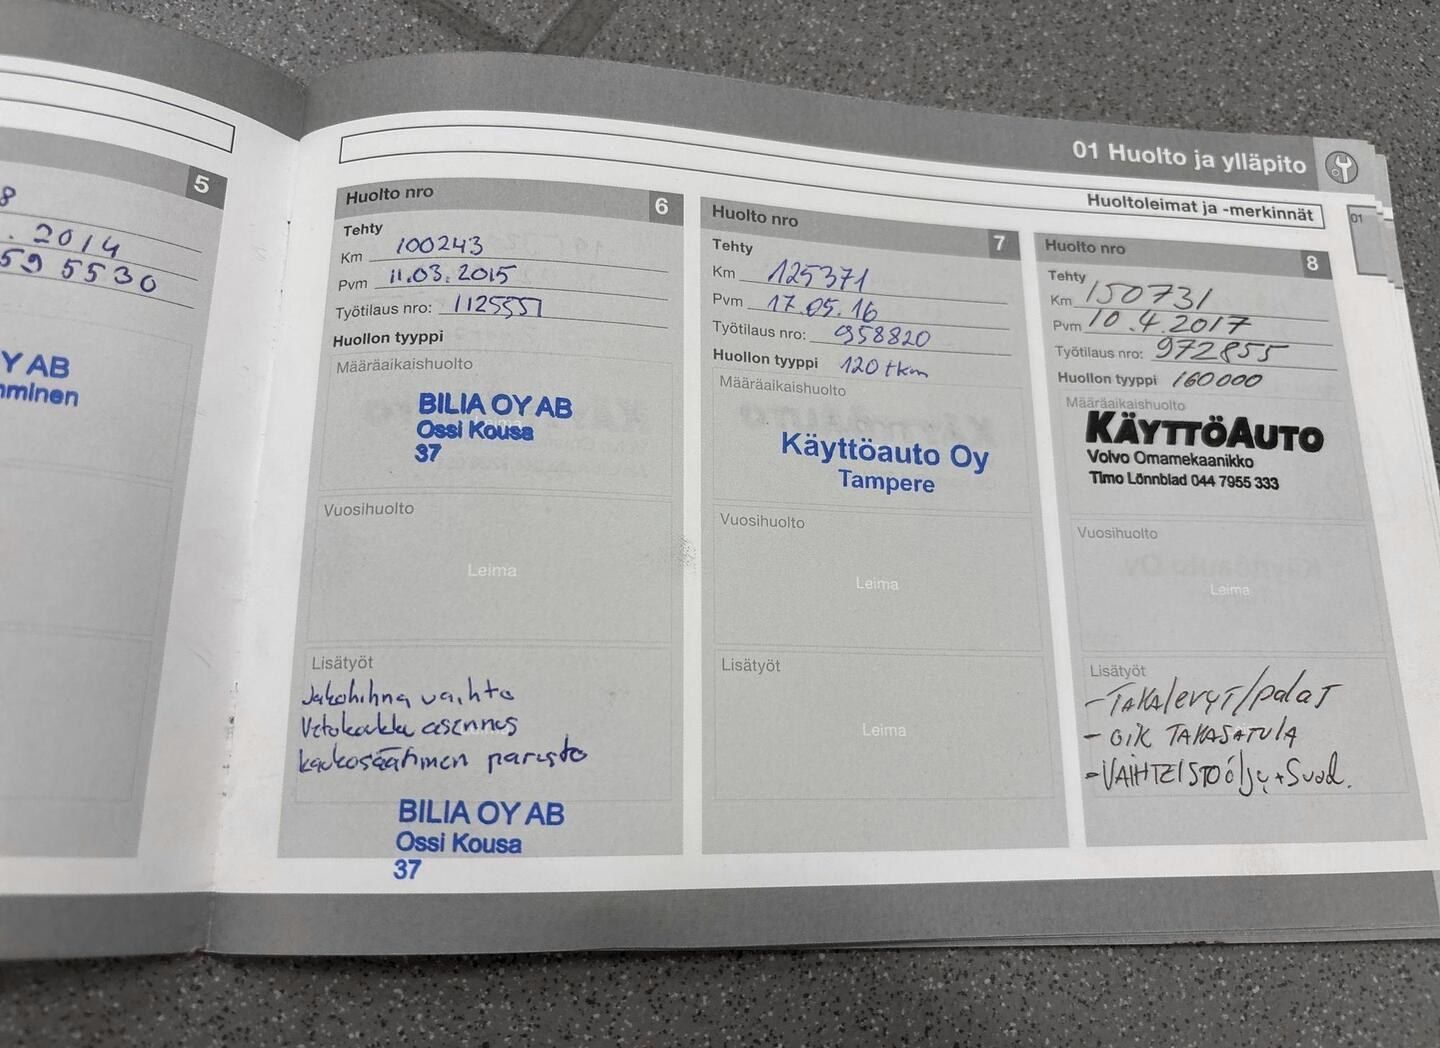 01 Huolto ja ylläpito
Huoltoleimat ja -merkinnät
01
5
8
. 2014
59 5530
Y AB
mminen
Huolto nro 6
Tehty
Km 100243
Pvm 11.03.2015
Työtilaus nro: 1125551
Huollon tyyppi
Määräaikaishuolto
BILIA OY AB
Ossi Kousa
37
Vuosihuolto
Leima
Lisätyöt
Jakohihna vaihto
Vetokoukku asennus
kaukosäätimen paristo
BILIA OY AB
Ossi Kousa
37
Huolto nro 7
Tehty
Km 125371
Pvm 17.05.16
Työtilaus nro: 958820
Huollon tyyppi 120 tkm
Määräaikaishuolto
Käyttöauto Oy
Tampere
Vuosihuolto
Leima
Lisätyöt
Leima
Huolto nro 8
Tehty
Km 150731
Pvm 10.4.2017
Työtilaus nro: 972855
Huollon tyyppi 160000
Määräaikaishuolto
KÄYTTÖAUTO
Volvo Omamekaanikko
Timo Lönnblad 044 7955 333
Vuosihuolto
Leima
Lisätyöt
- TAKALEVYT/PALAT
- OIK TAKASATULA
- VAIHTEISTOÖljy + Suod.